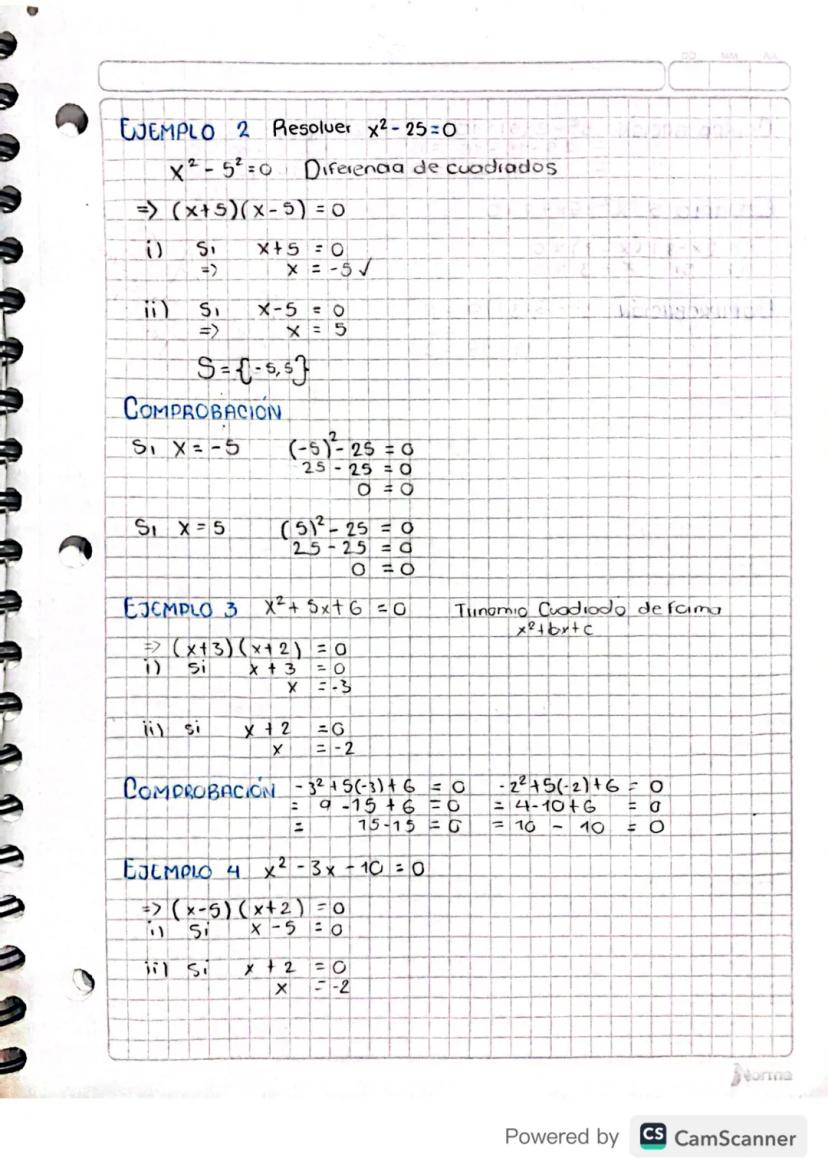 EJEMPLO 2 Resolver x² - 25 = 0
x² - 5² = 0 Diferencia de cuadrados
=> (x+5)(x-5) = 0
i) Si x+5 = 0
=> x = -5 ✓
ii) Si x-5 = 0
=> x = 5
S = {-5, 5}
COMPROBACIÓN
Si x = -5 (-5)² - 25 = 0
25 - 25 = 0
0 = 0
Si x = 5 (5)² - 25 = 0
25 - 25 = 0
0 = 0
EJEMPLO 3 x² + 5x + 6 = 0 Trinomio Cuadrado de forma
x²+bx+c
=> (x+3)(x+2) = 0
i) si x + 3 = 0
x = -3
ii) si x + 2 = 0
x = -2
COMPROBACIÓN -3² + 5(-3) + 6 = 0 -2² + 5(-2) + 6 = 0
= 9 - 15 + 6 = 0 = 4 - 10 + 6 = 0
= 15 - 15 = 0 = 10 - 10 = 0
EJEMPLO 4 x² - 3x - 10 = 0
=> (x-5)(x+2) = 0
i) Si x - 5 = 0
ii) Si x + 2 = 0
x = -2
Norma
Powered by CS CamScanner